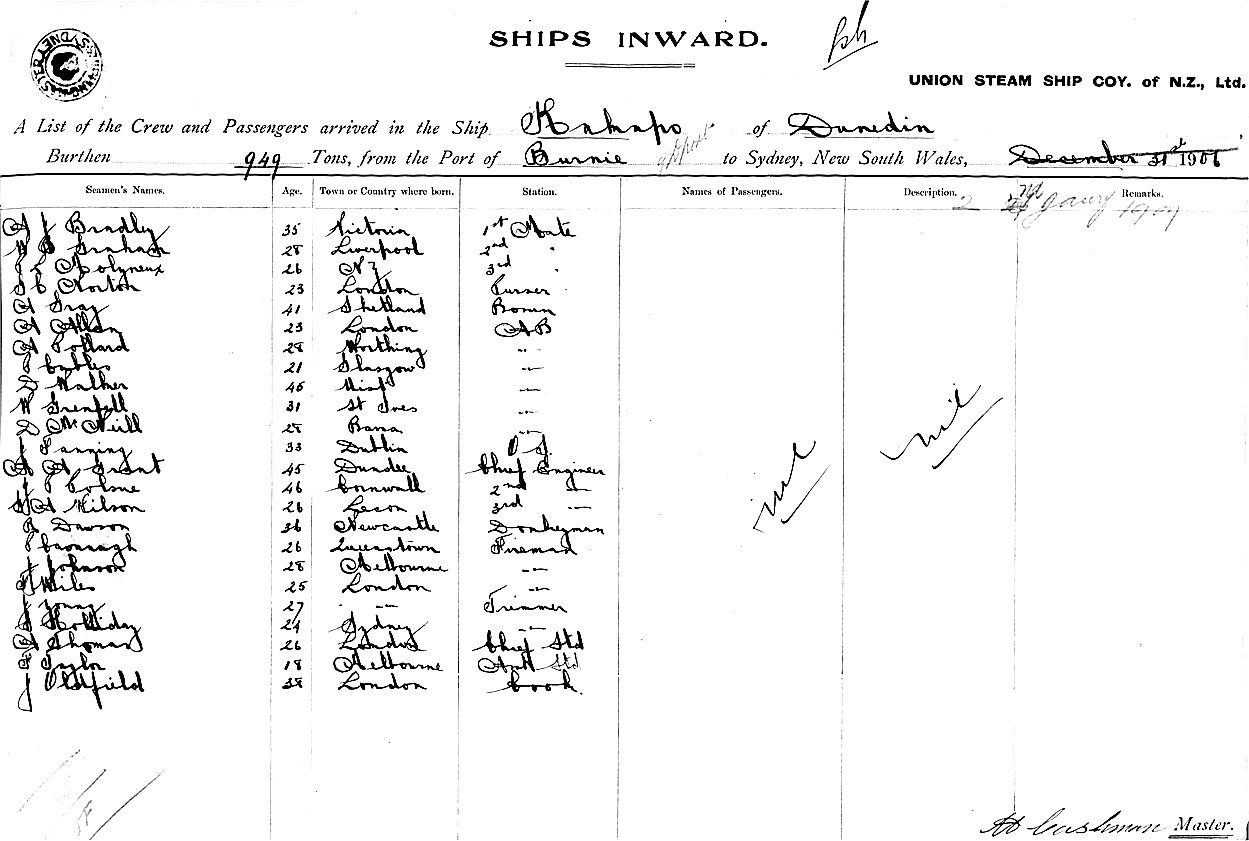 SHIPS INWARD.
UNION STEAM SHIP COY. of N.Z., Ltd.
A List of the Crew and Passengers arrived in the Ship Kakapo of Dunedin
Burthen 949 Tons, from the Port of Burnie to Sydney, New South Wales, December 31st 1906
Seamen's Names. Age. Town or Country where born. Station. Names of Passengers. Description. Remarks.
2nd Jany 1907
A J Bradley 35 Victoria 1st Mate
W B Graham 28 Liverpool 2nd "
Molyneux 26 NZ 3rd
S C Norton 23 London Purser
A Gray 41 Shetland Bosun
A Allan 23 London AB
A Pollard 28 Worthing -"-
Cubbles 21 Glasgow -"-
D Walker 46 -"-
W Grenfell 31 St Ives -"-
D McNeill 28 Barra -"-
J Canning 33 Dublin O S
A A Grant 45 Dundee Chief Engineer
46 Cornwall 2nd -"-
A Wilson 26 3rd -"-
R Dawson 36 Newcastle Donkeyman
Cavanagh 26 Queenstown Fireman
J Johnson 28 Melbourne -"-
Miles 25 London -"-
J Young 27 -"- Trimmer
J Holliday 24 Sydney -"-
A Thomas 26 London Chief Std
G Taylor 18 Melbourne Asst Std
J Oldfield 38 London Cook
nil
nil
Cushman Master.